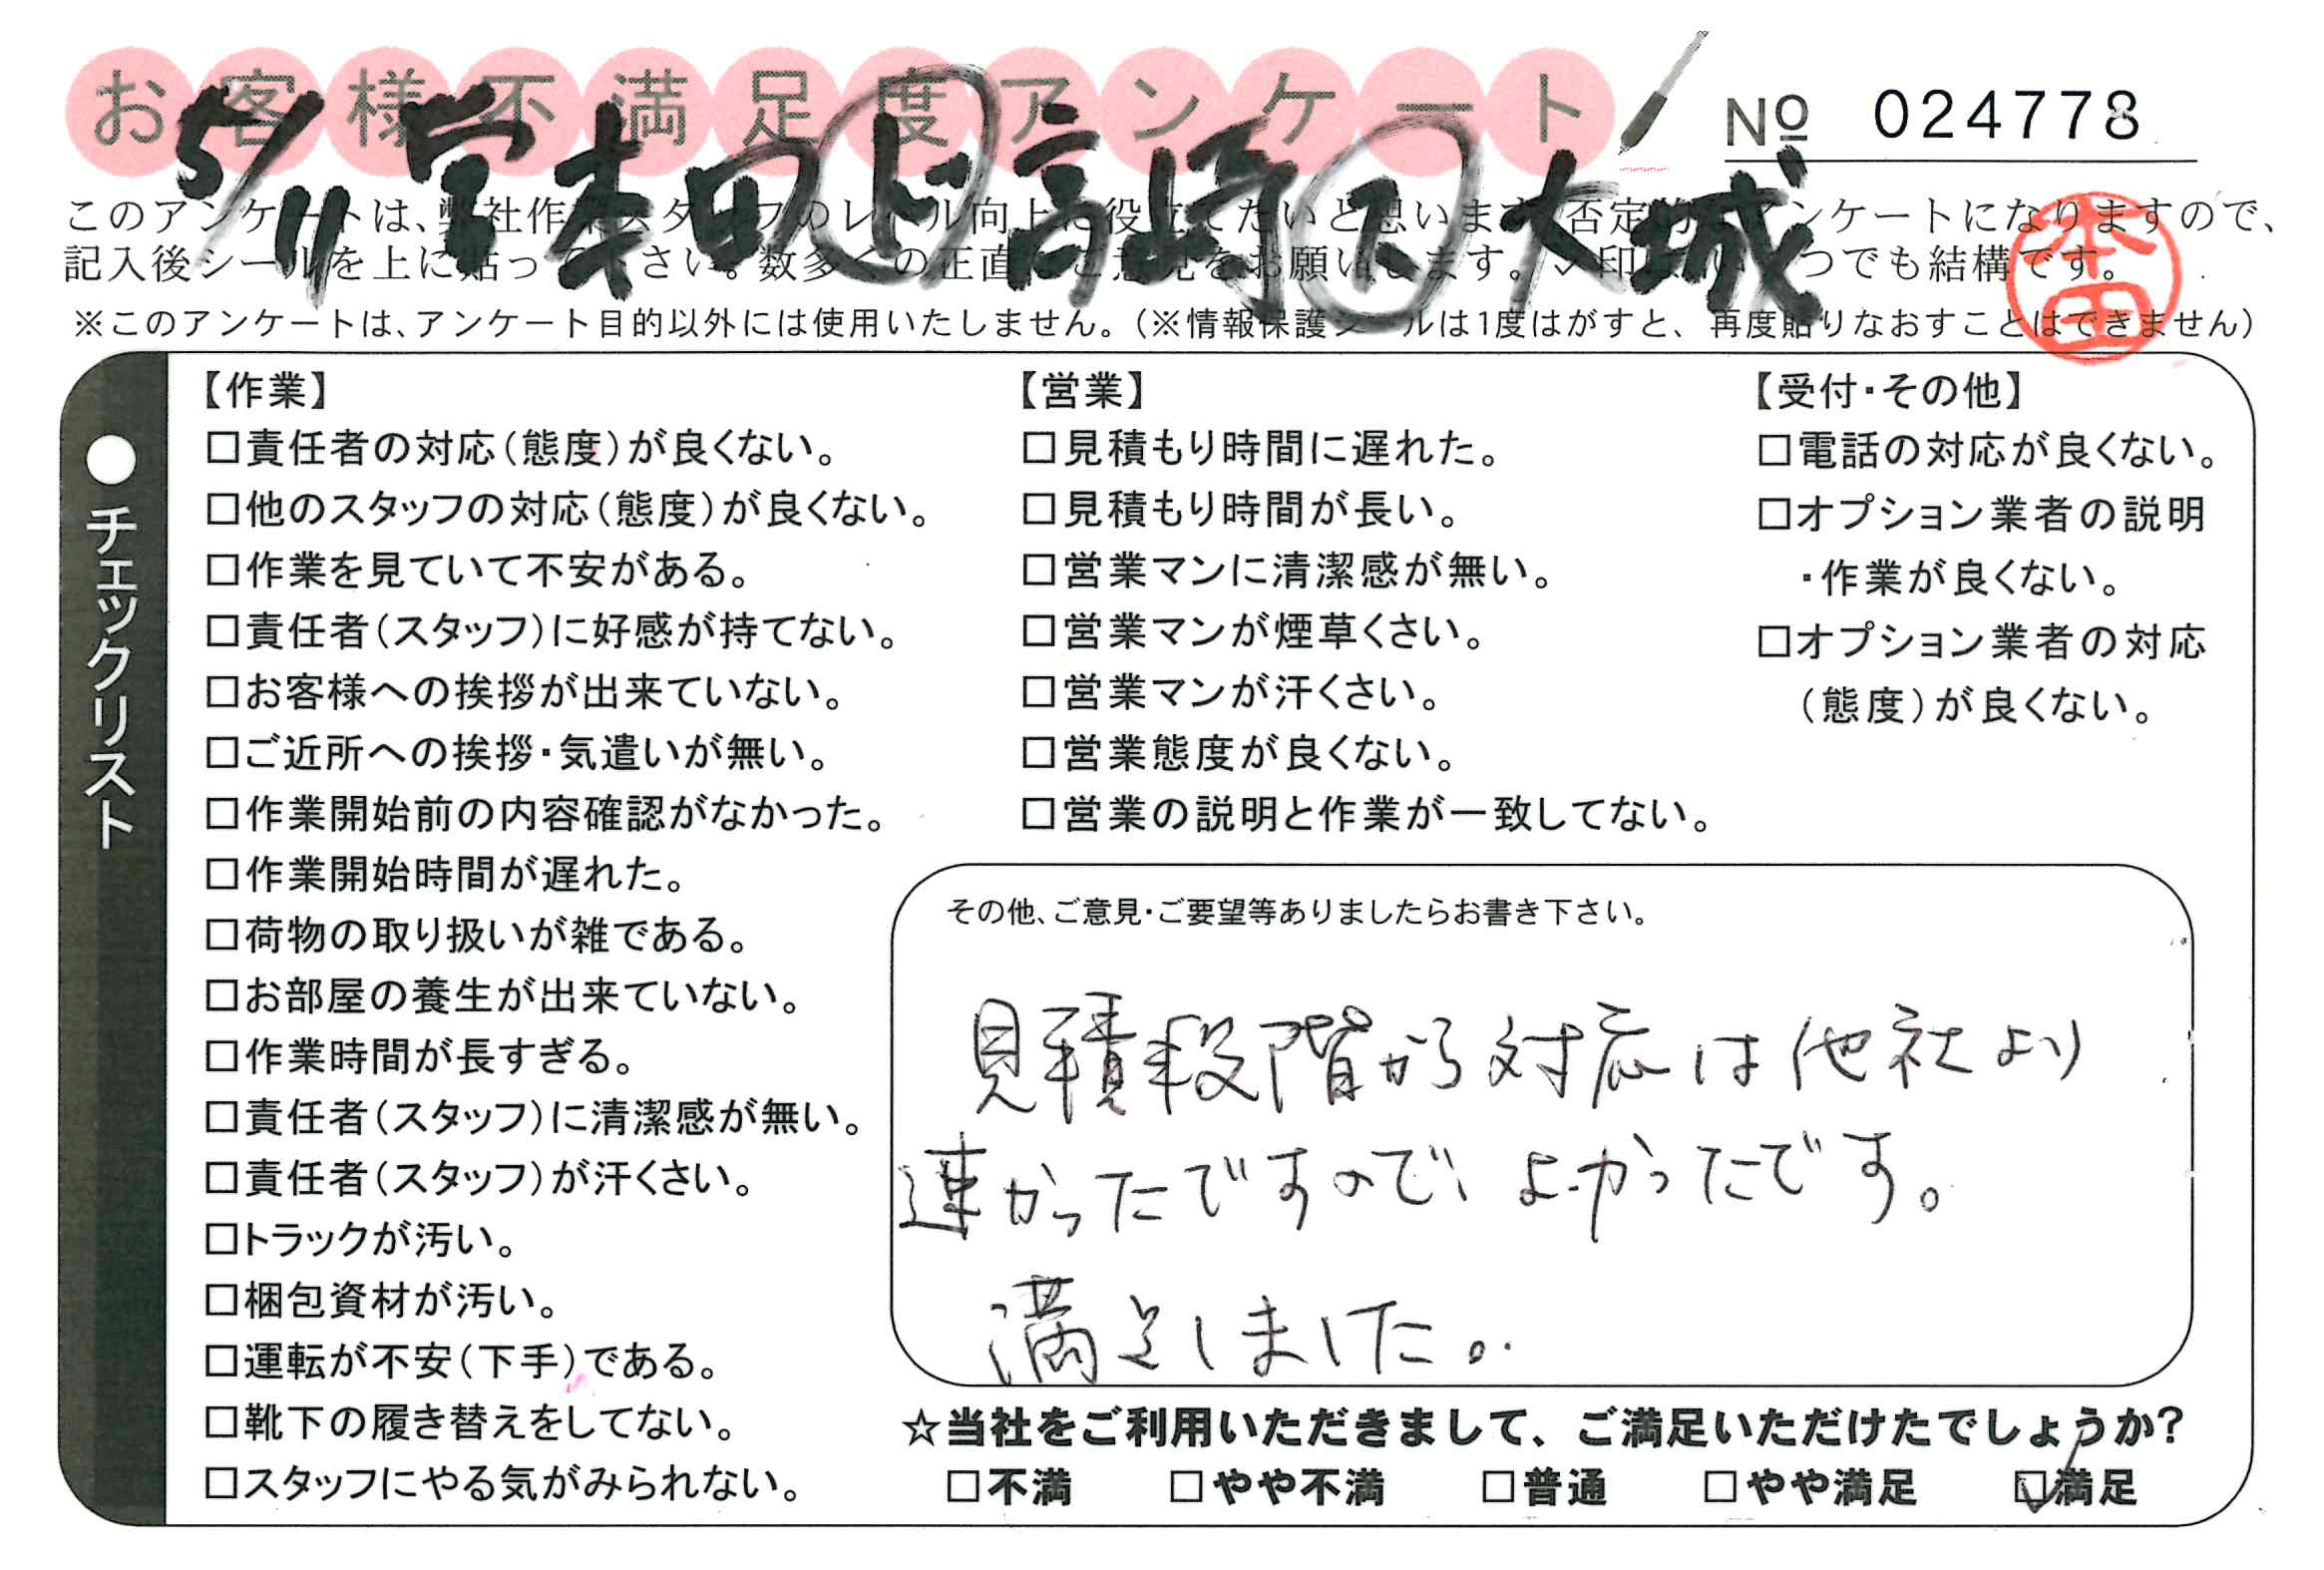 お客様不満足度アンケート
№ 024778
5/11 営本田 ド 高崎 大城
このアンケートは、弊社作業スタッフのレベル向上に役立てたいと思います。否定的なアンケートになりますので、
記入後シールを上に貼って下さい。数多くの正直なご意見をお願いします。✓印はいくつでも結構です。
本田
※このアンケートは、アンケート目的以外には使用いたしません。（※情報保護シールは1度はがすと、再度貼りなおすことはできません）
●チェックリスト
【作業】
□責任者の対応（態度）が良くない。
□他のスタッフの対応（態度）が良くない。
□作業を見ていて不安がある。
□責任者（スタッフ）に好感が持てない。
□お客様への挨拶が出来ていない。
□ご近所への挨拶・気遣いが無い。
□作業開始前の内容確認がなかった。
□作業開始時間が遅れた。
□荷物の取り扱いが雑である。
□お部屋の養生が出来ていない。
□作業時間が長すぎる。
□責任者（スタッフ）に清潔感が無い。
□責任者（スタッフ）が汗くさい。
□トラックが汚い。
□梱包資材が汚い。
□運転が不安（下手）である。
□靴下の履き替えをしてない。
□スタッフにやる気がみられない。
【営業】
□見積もり時間に遅れた。
□見積もり時間が長い。
□営業マンに清潔感が無い。
□営業マンが煙草くさい。
□営業マンが汗くさい。
□営業態度が良くない。
□営業の説明と作業が一致してない。
【受付・その他】
□電話の対応が良くない。
□オプション業者の説明
・作業が良くない。
□オプション業者の対応
（態度）が良くない。
その他、ご意見・ご要望等ありましたらお書き下さい。
見積段階から対応は他社より
速かったですので、よかったです。
満足しました。
☆当社をご利用いただきまして、ご満足いただけたでしょうか？
□不満 □やや不満 □普通 □やや満足 ☑満足